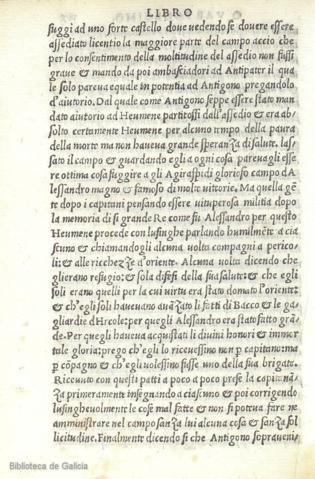 LIBRO
fuggi ad uno forte castello dove vedendo se dovere essere
assediato licentio la maggiore parte del campo accio che
per lo consentimento della moltitudine del assedio non fussi
grave & mando da poi ambasciadori ad Antipater il qua
le solo pareva equale in potentia ad Antigono pregandolo
d'aiutorio. Dal quale come Antigono seppe essere stato man
dato aiutorio ad Heumene partitossi dall'assedio & era ab‑
solto certamente Heumene per alcuno tempo della paura
della morte ma non haveva grande speranza di salute. las‑
sato il campo & guardando egli a ogni cosa parevagli esse
re ottima cosa fuggire a gli Agiraspidi glorioso campo da
lessandro magno & famoso di molte vittorie. Ma quella gẽ
te dopo i capitani pensando essere vituperosa militia dopo
la memoria di si grande Re come fu Alessandro per questo
Heumene procede con lusinghe parlando humilmẽte a cia
scuno & chiamandogli alcuna volta compagni a perico‑
li: & alle richezze d'oriente. Alcuna volta dicendo che
glierano refugio: & sola difesi della sua salute: & che egli
soli erano quelli per la cui virtu era stato domato l'oriẽte:
& ch'egli soli havevano auãzato li fatti di Bacco & le ga‑
gliardie d'Hrcole: per quegli Alessandro era stato fatto grã‑
de. Per quegli haveva acquistati li divini honori & immor
tale gloria: prego ch'egli lo ricevessino non p capitano: ma
p cõpagno & ch'egli volessino fusse uno della sua brigata.
Ricevuto con questi patti a poco a poco prese la capitanã‑
za primeramente insegnando a ciascuno & poi corrigendo
lusinghevolmente le cose mal fatte & non si potrua fare ne
amministrare nel campo sanza lui alcuna cosa & sanza sol
licitudine. Finalmente dicendo si che Antigono sopraveni‑
Biblioteca de Galicia